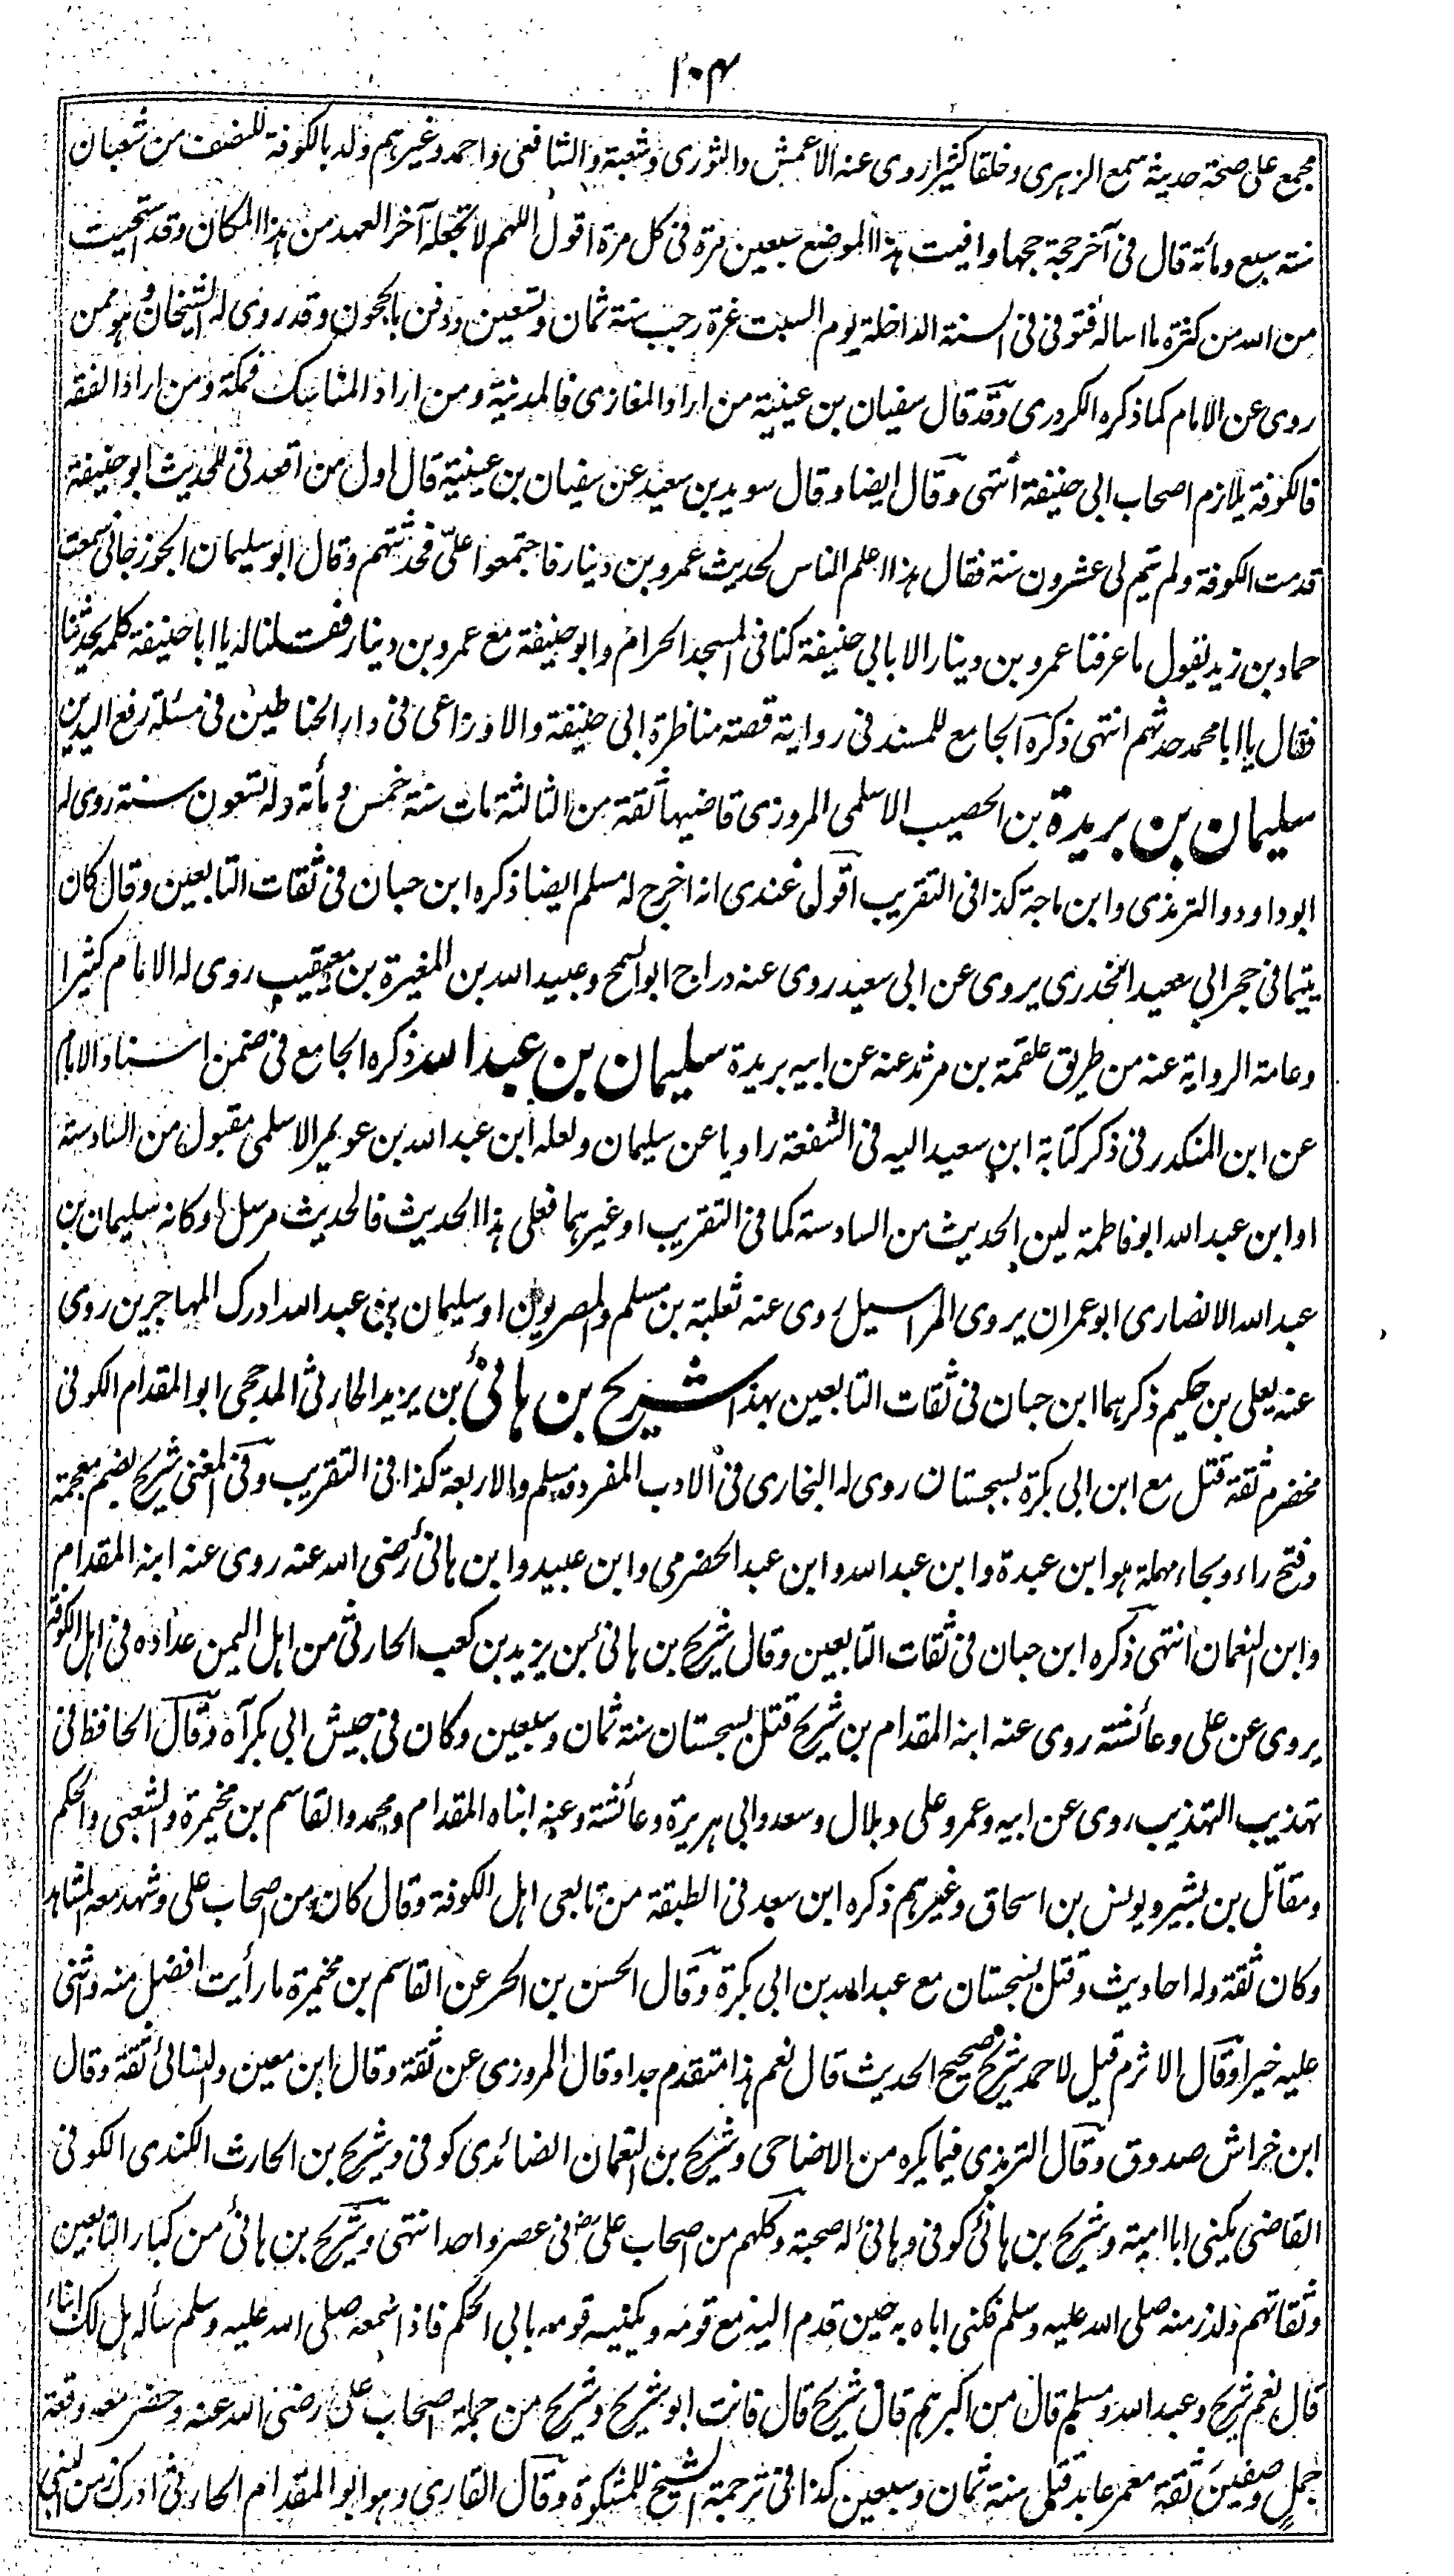 ۱۰۴
مجمع على صحة حديثه سمع الزهرى وخلقا كثيرا روى عنه الاعمش والثورى وشعبة والشافعى واحمد وغيرهم ولد بالكوفة للنصف من شعبان
سنة سبع ومأته قال فى آخر حجة حجها وافيت هذا الموضع سبعين مرة فى كل مرة اقول اللهم لا تجعله آخر العهد من هذا المكان وقد استحييت
من الله من كثرة ما اساله فتوفى فى السنة الداخلة يوم السبت غرة رجب سنة ثمان وتسعين ودفن بالحجون وقد روى له الشيخان وهو ممن
روى عن الامام كما ذكره الكردرى وقد قال سفيان بن عيينة من اراد المغازى فالمدينة ومن اراد المناسك فمكة ومن اراد الفقه
فالكوفة يلازم اصحاب ابى حنيفة انتهى وقال ايضا وقال سويد بن سعيد عن سفيان بن عيينة قال اول من اقعدنى للحديث ابو حنيفة
قدمت الكوفة ولم يتم لى عشرون سنة فقال هذا اعلم الناس لحديث عمرو بن دينار فاجتمعوا علىّ فحدثتهم وقال ابو سليمان الجوزجانى سمعت
حماد بن زيد يقول ما عرفنا عمرو بن دينار الا بابي حنيفة كنا فى المسجد الحرام وابو حنيفة مع عمرو بن دينار فقلنا له يا ابا حنيفة كلمه يحدثنا
فقال يا ابا محمد حدثهم انتهى ذكره الجامع للمسند فى رواية قصته مناظرة ابى حنيفة والاوزاعى فى دار الحناطين فى مسئلة رفع اليدين
سليمان بن بريدة بن الحصيب الاسلمى المروزى قاضيها ثقة من الثالثة مات سنة خمس ومأته وله تسعون سنة روى له
ابو داود والترمذى وابن ماجة كذا فى التقريب اقول عندى انه اخرج له مسلم ايضا ذكره ابن حبان فى ثقات التابعين وقال كان
يتيما فى حجر ابي سعيد الخدرى يروى عن ابى سعيد روى عنه دراج ابو السمح وعبيد الله بن المغيرة بن معيقيب روى له الامام كثيرا
وعامة الرواية عنه من طريق علقمة بن مرثد عنه عن ابيه بريدة سليمان بن عبد الله ذكره الجامع فى ضمن اسناد الامام
عن ابن المنكدر فى ذكر كتابة ابن سعيد اليه فى الشفعة راويا عن سليمان ولعله ابن عبد الله بن عويمر الاسلمى مقبول من السادسة
او ابن عبد الله ابو فاطمة لين الحديث من السادسة كما فى التقريب او غيرهما فعلى هذا الحديث فالحديث مرسل او كانه سليمان بن
عبد الله الانصارى ابو عمران يروى المراسيل روى عنه ثعلبة بن مسلم والمصريون او سليمان بن عبد الله ادرك المهاجرين روى
عنه يعلى بن حكيم ذكرهما ابن حبان فى ثقات التابعين بهذا شريح بن هانئ بن يزيد الحارثى المذحجى ابو المقدام الكوفى
مخضرم ثقة قتل مع ابن ابى بكرة بسجستان روى له البخارى فى الادب المفرد ومسلم والاربعة كذا فى التقريب وفى المغنى شريح بضم معجمة
وفتح راء وبحاء مهملة هو ابن عبدة وابن عبد الله وابن عبد الحضرمى وابن عبيد وابن هانئ رضى الله عنه روى عنه ابنه المقدام
وابن النعمان انتهى ذكره ابن حبان فى ثقات التابعين وقال شريح بن هانئ بن يزيد بن كعب الحارثى من اهل اليمن عداده فى اهل الكوفة
يروى عن على وعائشة روى عنه ابنه المقدام بن شريح قتل بسجستان سنة ثمان وسبعين وكان فى جيش ابى بكرة آه وقال الحافظ فى
تهذيب التهذيب روى عن ابيه وعمر وعلى وبلال وسعد وابى هريرة وعائشة وعنه ابناه المقدام ومحمد والقاسم بن مخيمرة والشعبى والحكم
ومقاتل بن بشير ويونس بن اسحاق وغيرهم ذكره ابن سعد فى الطبقة من تابعى اهل الكوفة وقال كان من اصحاب على وشهد معه المشاهد
وكان ثقة وله احاديث وقتل بسجستان مع عبد الله بن ابى بكرة وقال الحسن بن الحر عن القاسم بن مخيمرة ما رأيت افضل منه واثنى
عليه خيرا وقال الاثرم قيل لاحمد شريح صحيح الحديث قال نعم هذا متقدم جدا وقال المروزى عن ثقة وقال ابن معين والنسائى ثقة وقال
ابن خراش صدوق وقال الترمذى فيما يكره من الاضاحى وشريح بن النعمان الصائدى كوفى وشريح بن الحارث الكندى الكوفى
القاضى يكنى ابا امية وشريح بن هانئ كوفى وهانئ له صحبة وكلهم من اصحاب على رض فى عصر واحد انتهى وشريح بن هانئ من كبار التابعين
وثقاتهم ولد زمنه صلى الله عليه وسلم فكنى اباه به حين قدم اليه مع قومه ويكنيه قومه بابي الحكم فاذا سمعه صلى الله عليه وسلم سأله هل لك ابناء
قال نعم شريح وعبد الله ومسلم قال من اكبرهم قال شريح قال فانت ابو شريح وشريح من جملة اصحاب على رضى الله عنه وحضر معه وقعة
جمل وصفين ثقة معمر عابد قتل سنة ثمان وسبعين كذا فى ترجمة الشيخ للمشكوة وقال القارى وهو ابو المقدام الحارثى ادرك زمن النبى